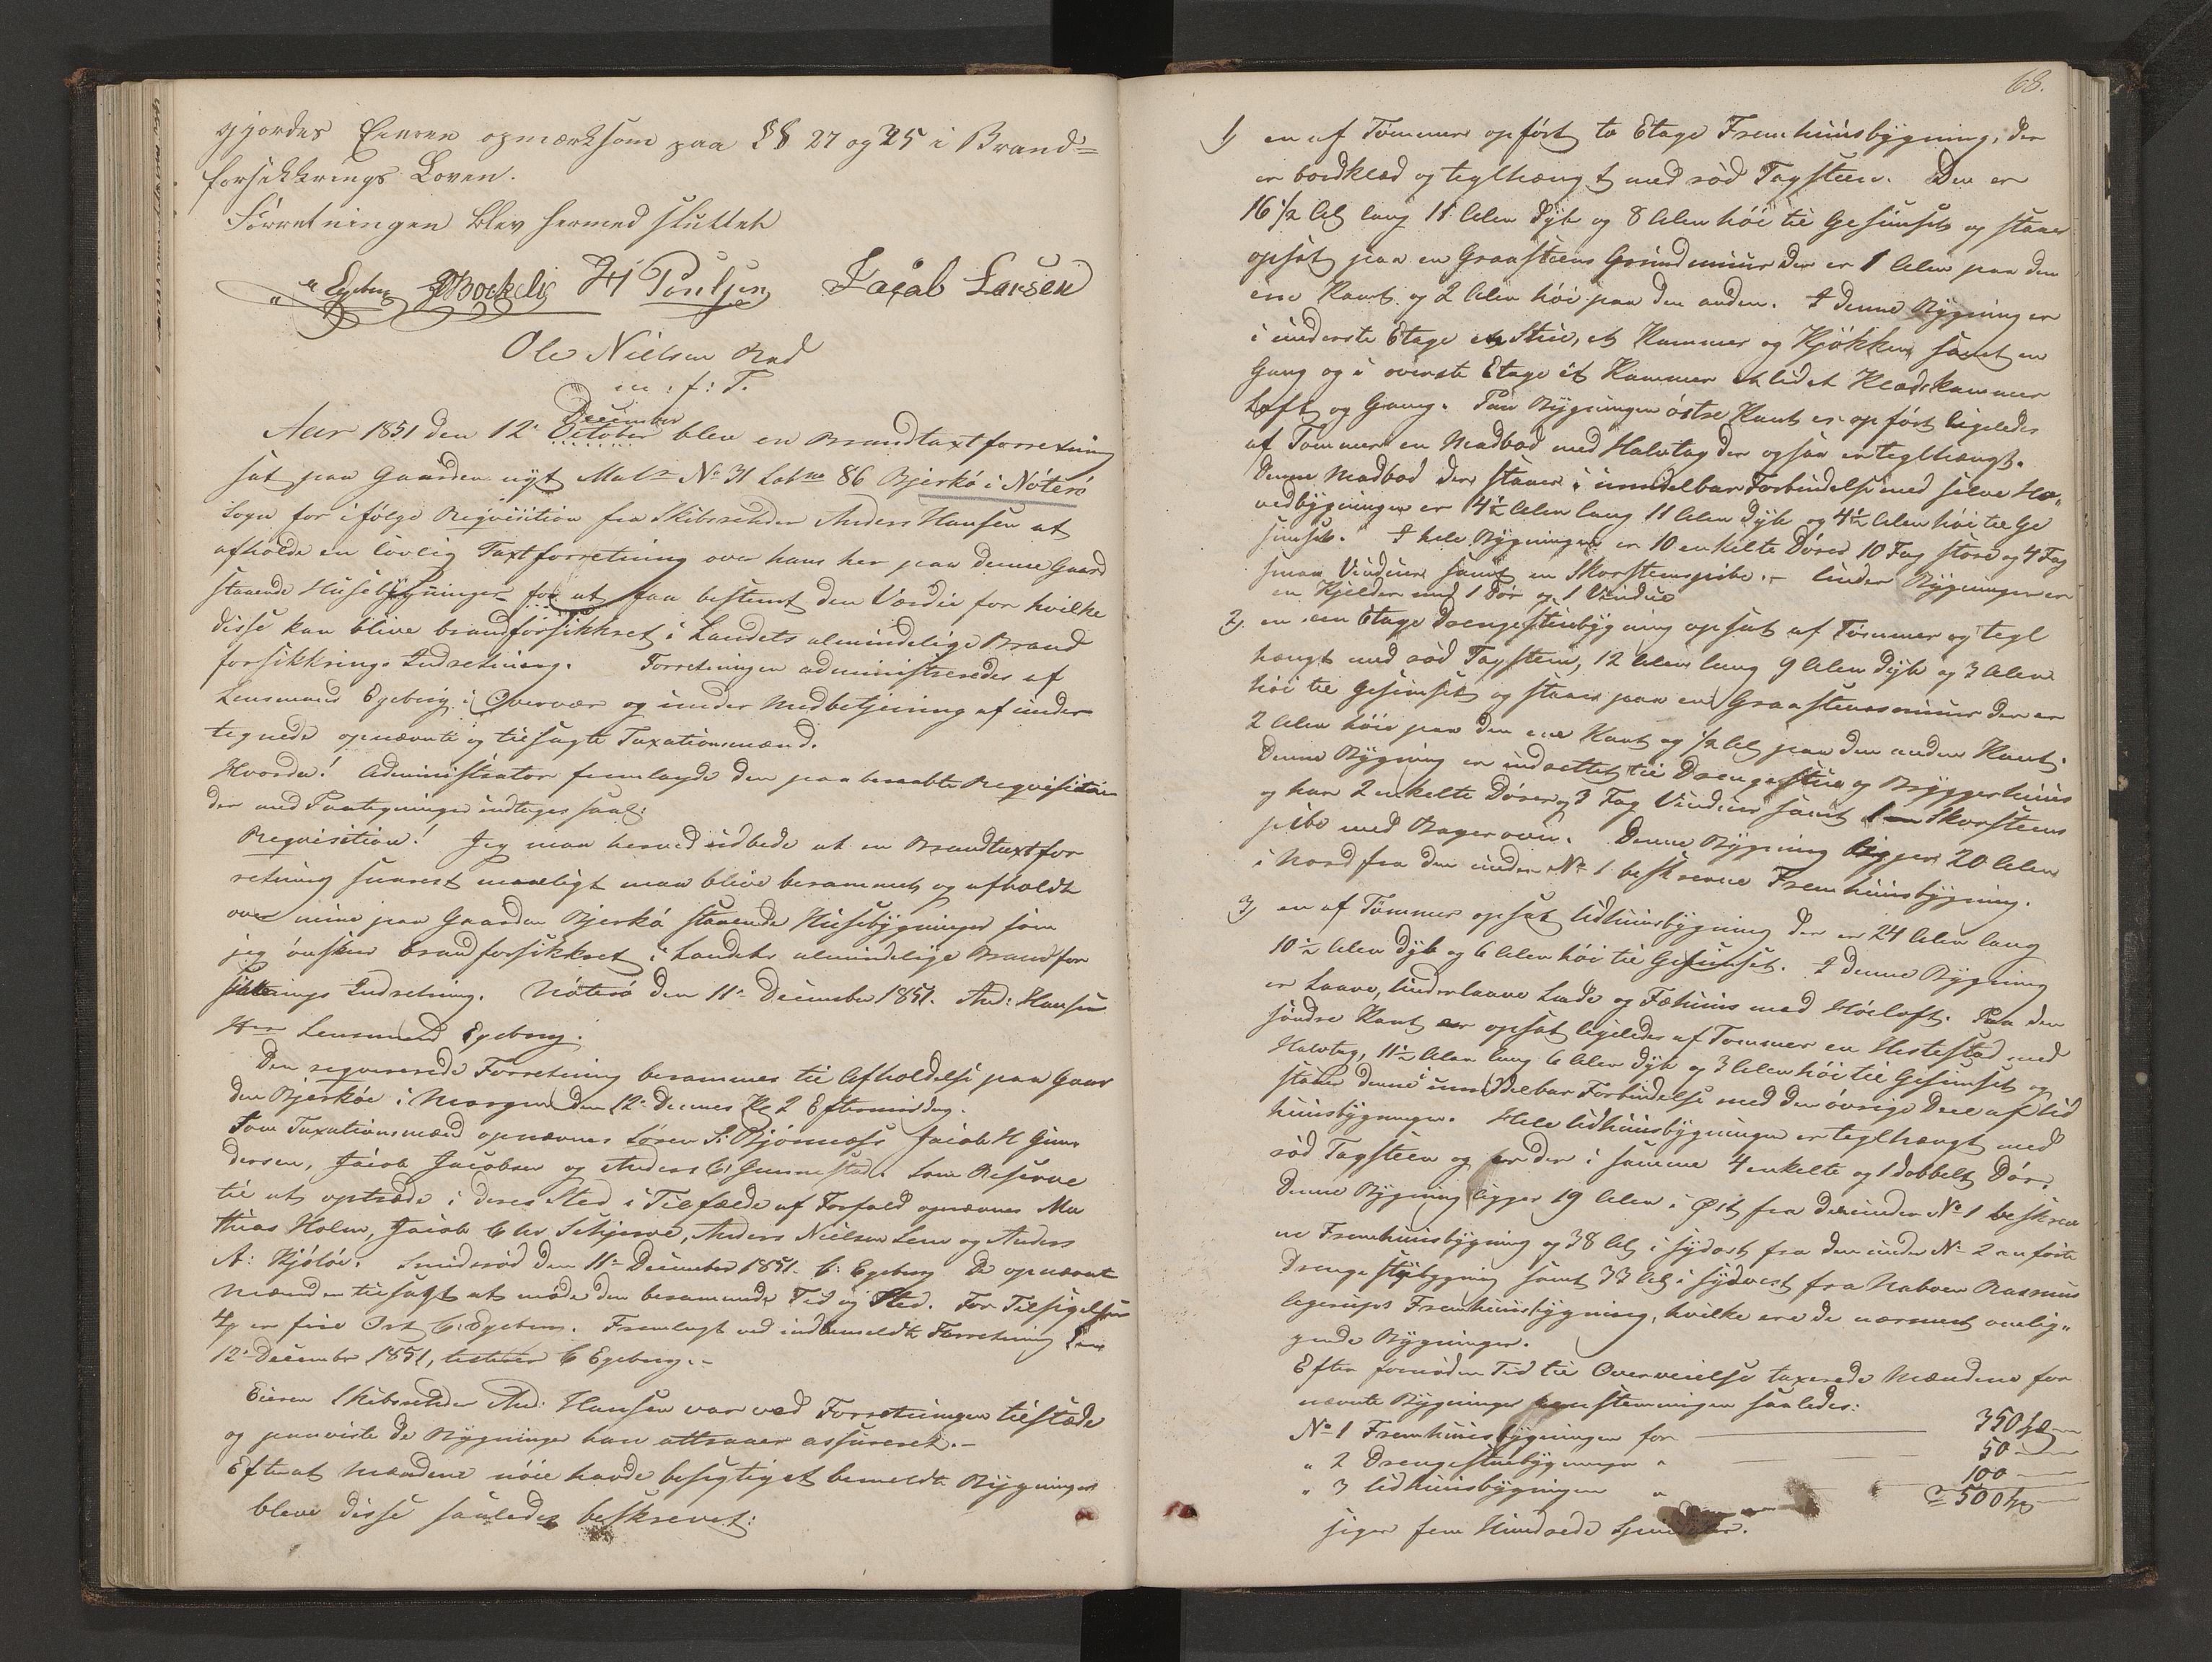 gjordes Eieren opmærksom paa §§ 27 og 25 i Brand=
forsikkrings Loven.
Forretningen blev hermed sluttet
Egeberg Bockelie H Poulsen Jacob Larsen
Ole Nielsen Rød
m: f: P.
December
Aar 1851 den 12te October blev en Brandtaxtforretning
sat paa Gaarden nyt Matr No 31 Lobno 86 Bjerkø i Nøterø
Sogn for ifølge Reqvisition fra Skibsreder Anders Hansen at
afholde en lovlig Taxtforretning over hans her paa denne Gaard
staaende Husebygninger for at faa bestemt den Værdie for hvilke
disse kan blive brandforsikkret i Landets almindelige Brand
forsikkrings Indretning. Forretningen administreredes af
Lensmand Egeberg i Overvær og under Medbetjening af under
tegnede opnævnte og tilsagte Taxationsmænd.
Hvorda! Administrator fremlagde den paa beraabte Reqvisition
der med Paategninger indtages saal:
Reqvisition! Jeg maa herved udbede at en Brandtaxtfor
retning snarest mueligt maa blive berammet og afholdt
over mine paa Gaarden Bjerkø staaende Husebygninger som
jeg ønsker brandforsikkret i Landets almindelige Brandfor
sikkrings Indretning. Nøterø den 11te December 1851. And: Hansen
Hr Lensmand Egeberg.
Den reqvirerede Forretning berammes til Afholdelse paa Gaar
den Bjerkøe i Morgen den 12te Dennes Kl 2 Eftermiddag.
Som Taxationsmænd opnævnes Søren S. Bjønnæss Jacob H Gun
dersen, Jacob Jacobsen og Anders C. Gunnestad. Som Reserve
til at optræde i deres Sted i Tilfælde af Forfald opnævnes Ma
thias Holm, Jacob Chr Schjerve, Anders Nielsen Lem og Anders
A: Kjøløe. Smidsrød den 11te December 1851. C: Egeberg De opnævnte
Mænd er tilsagt at møde den berammede Tid og Sted. For Tilsigelsen
4 er fire Ort C: Egeberg. Fremlagt ved indbemeldte Forretning den
12te December 1851, testerer C Egeberg.-
Eieren Skibsreder And: Hansen var ved Forretningen tilstæde
og paaviste de Bygninger han attraaer assureret.-
Efterat Mændene nøie havde besigtiget bemeldte Bygninger
bleve disse saaledes beskrevet:
68.
1) en af Tømmer opført to Etage Fremhuusbygning, der
er bordklæd og teglhængt med rød Tagsteen. Den er
16 1/2 Al lang 11 Alen dyb og 8 Alen høi til Gesimset og staaer
opsat paa en Graasteens Grundmuur der er 1 Alen paa den
ene Kant og 2 Alen høi paa den anden. I denne Bygning er
i underste Etage en Stue, et Kammer og Kjøkken samt en
Gang og i øverste Etage et Kammer et lidet Klædekammer
Loft og Gang. Paa Bygningens østre Kant er opført ligeledes
af Tømmer en Madbod med Halvtag der ogsaa er teglhængt.
Denne Madbod der staaer i umidelbar Forbindelse med selve Ho-
vedbygningen er 4 1/2 Alen lang 11 Alen dyb og 4 1/2 Alen høi til Ge
simset. I hele Bygningen er 10 enkelte Dører 10 Fag store og 4 Fag
smaa Vinduer samt en Skorsteenspibe.- Under Bygningen er
en Kjelder med 1 Dør og 1 Vindue
2) en een Etage Drengestuebygning opsat af Tømmer og tegl
hængt med rød Tagsteen, 12 Alen lang 9 Alen dyb og 3 Alen
høi til Gesimset og staaer paa en Graasteensmuur der er
2 Alen høi paa den ene Kant og 1/2 Al paa den anden Kant.
Denne Bygning er indrettet til Drengestue og Bryggerhuus
og har 2 enkelte Dører og 3 Fag Vinduer samt 1 Skorsteens
pibe med Bagerovn. Denne Bygning ligger 20 Alen
i Nord fra den under No 1 beskrevne Fremhuusbygning.
3) en af Tømmer opsat Udhuusbygning der er 24 Alen lang
10 1/2 Alen dyb og 6 Alen høi til Gesimset. I denne Bygning
er Laave, Underlaave Lade og Fæhuus med Høeloft. Paa den
søndre Kant er opsat ligeledes af Tømmer en Hestestad med
Halvtag, 11 1/2 Alen lang 6 Alen dyb og 3 Alen høi til Gesimset og
staaer denne i umiddelbar Forbindelse med den øvrige Deel af Ud
huusbygningen. Hele Udhuusbygningen er teglhængt med
rød Tagsteen og er der i samme 4 enkelte og 1 dobbelt Dør.
Denne Bygning ligger 19 Alen i Øst fra den under No 1 beskrev
ne Fremhuusbygning og 38 Al i Sydost fra den under No 2 anførte
Drengestuebygning samt 33 Al i Sydvest fra Naboen Rasmus
Fremhuusbygning, hvilke ere de nærmest omlig-
gende Bygninger.
Efter fornøden Tid til Overveielse taxerede Mændene for
nævnte Bygninger eenstemmigen saaledes:
No 1 Fremhuusbygningen for 350
" 2 Drengestuebygningen " 50
" 3 Udhuusbygningen " 100
500
siger fem Hundrede Spdler.